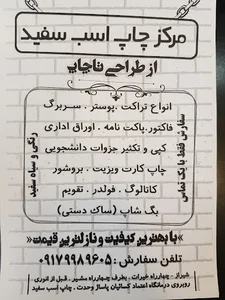 مرکز چاپ اسب سفید
از طراحی تا چاپ
انواع تراکت . پوستر . سربرگ
فاکتور . پاکت نامه . اوراق اداری
کپی و تکثیر جزوات دانشجویی
چاپ کارت ویزیت . بروشور
کاتالوگ . فولدر . تقویم
بگ شاپ (ساک دستی)
رنگی و سیاه سفید
سفارش فقط با یک تماس
«با بهترین کیفیت و نازلترین قیمت»
تلفن سفارش : ۰۹۱۷۹۹۸۹۶۰۵
شیراز - چهارراه خیرات . بطرف چهارراه مشیر . قبل از انوری
روبروی درمانگاه اعتماد کسائیان پاساژ وحدت . چاپ اسب سفید